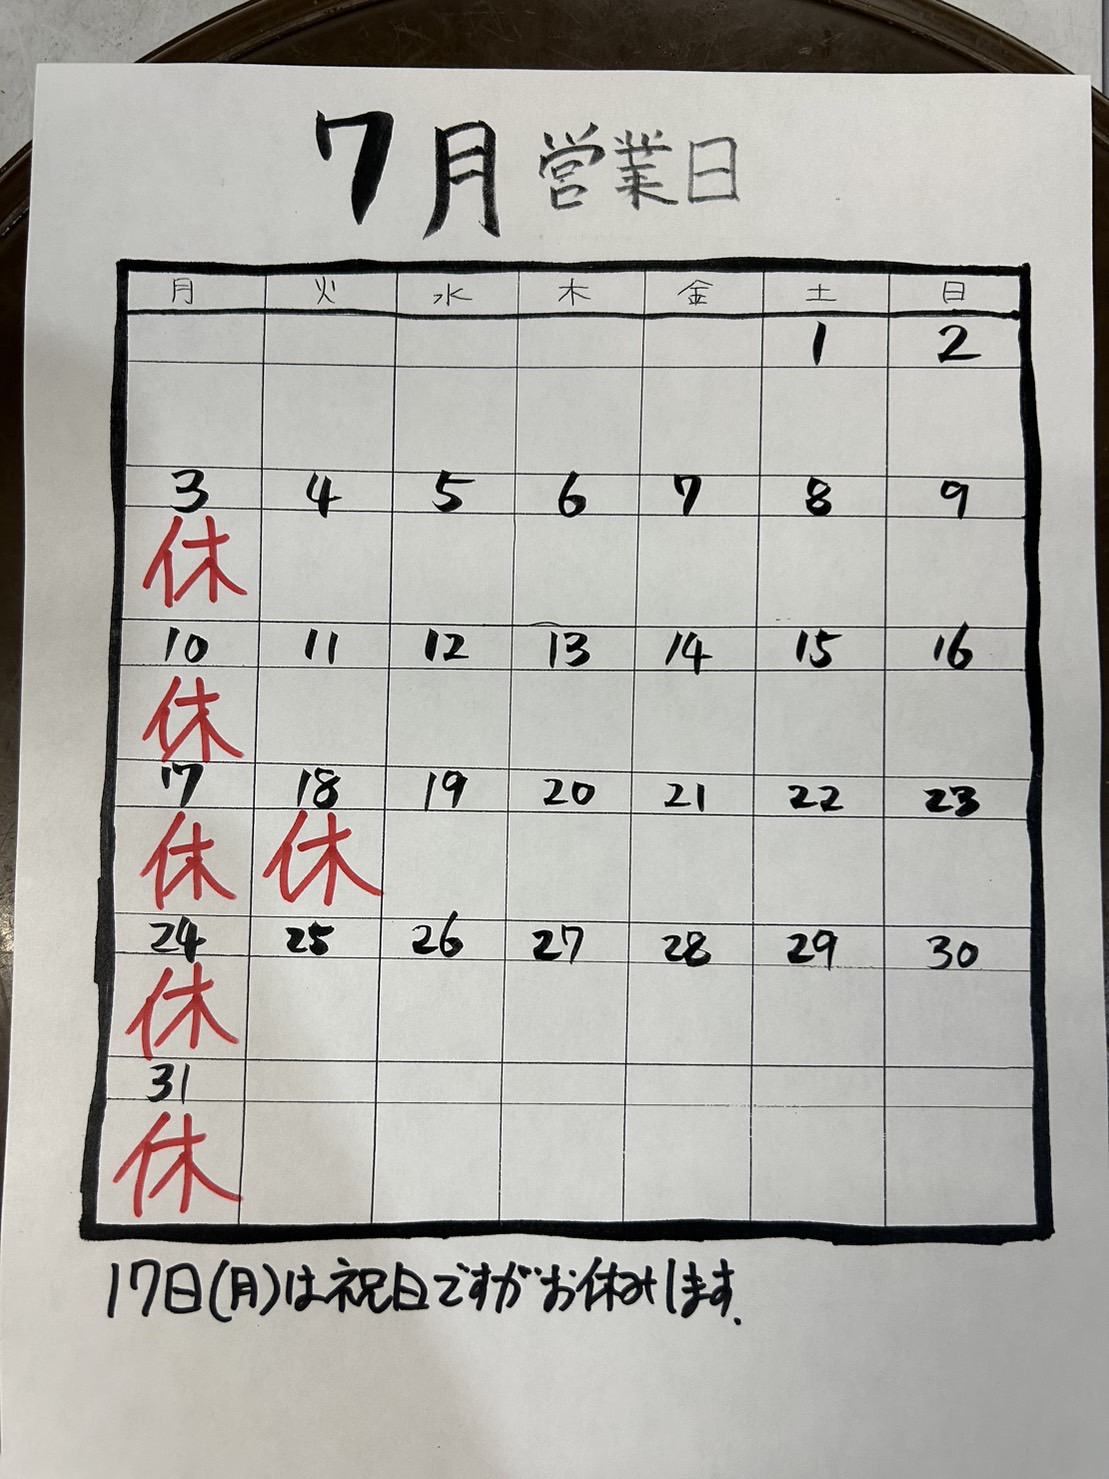 7月 営業日
月 火 水 木 金 土 日
1 2
3 4 5 6 7 8 9
休
10 11 12 13 14 15 16
休
17 18 19 20 21 22 23
休 休
24 25 26 27 28 29 30
休
31
休
17日(月)は祝日ですがお休みします.